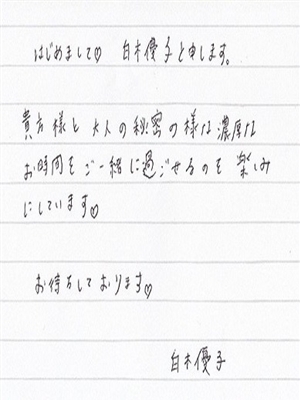 はじめまして♡ 白木優子と申します。
貴方様と大人の秘密の様な濃厚な
お時間をご一緒に過ごせるのを楽しみ
にしています♡
お待ちしております♡
白木優子